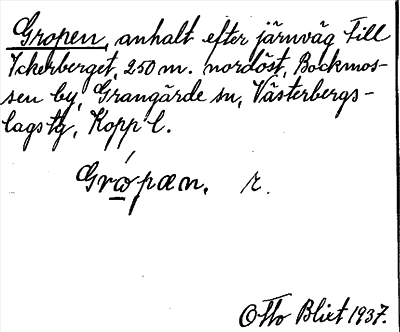 Gropen, anhalt efter järnväg till
Ickerberget, 250 m. nordöst, Bockmos-
sen by, Grangärde sn, Västerbergs-
lags tg, Kopp. l.
Gró̱pæn. r.
Otto Blixt 1937.